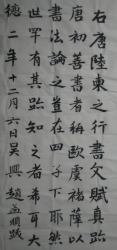 右唐陸東之行書文賦真跡
唐初善書者稱歐虞褚薛以
書法論之豈在四子下耶然
世罕有其跡知之者希耳大
德二年十二月六日吴興趙孟頫跋